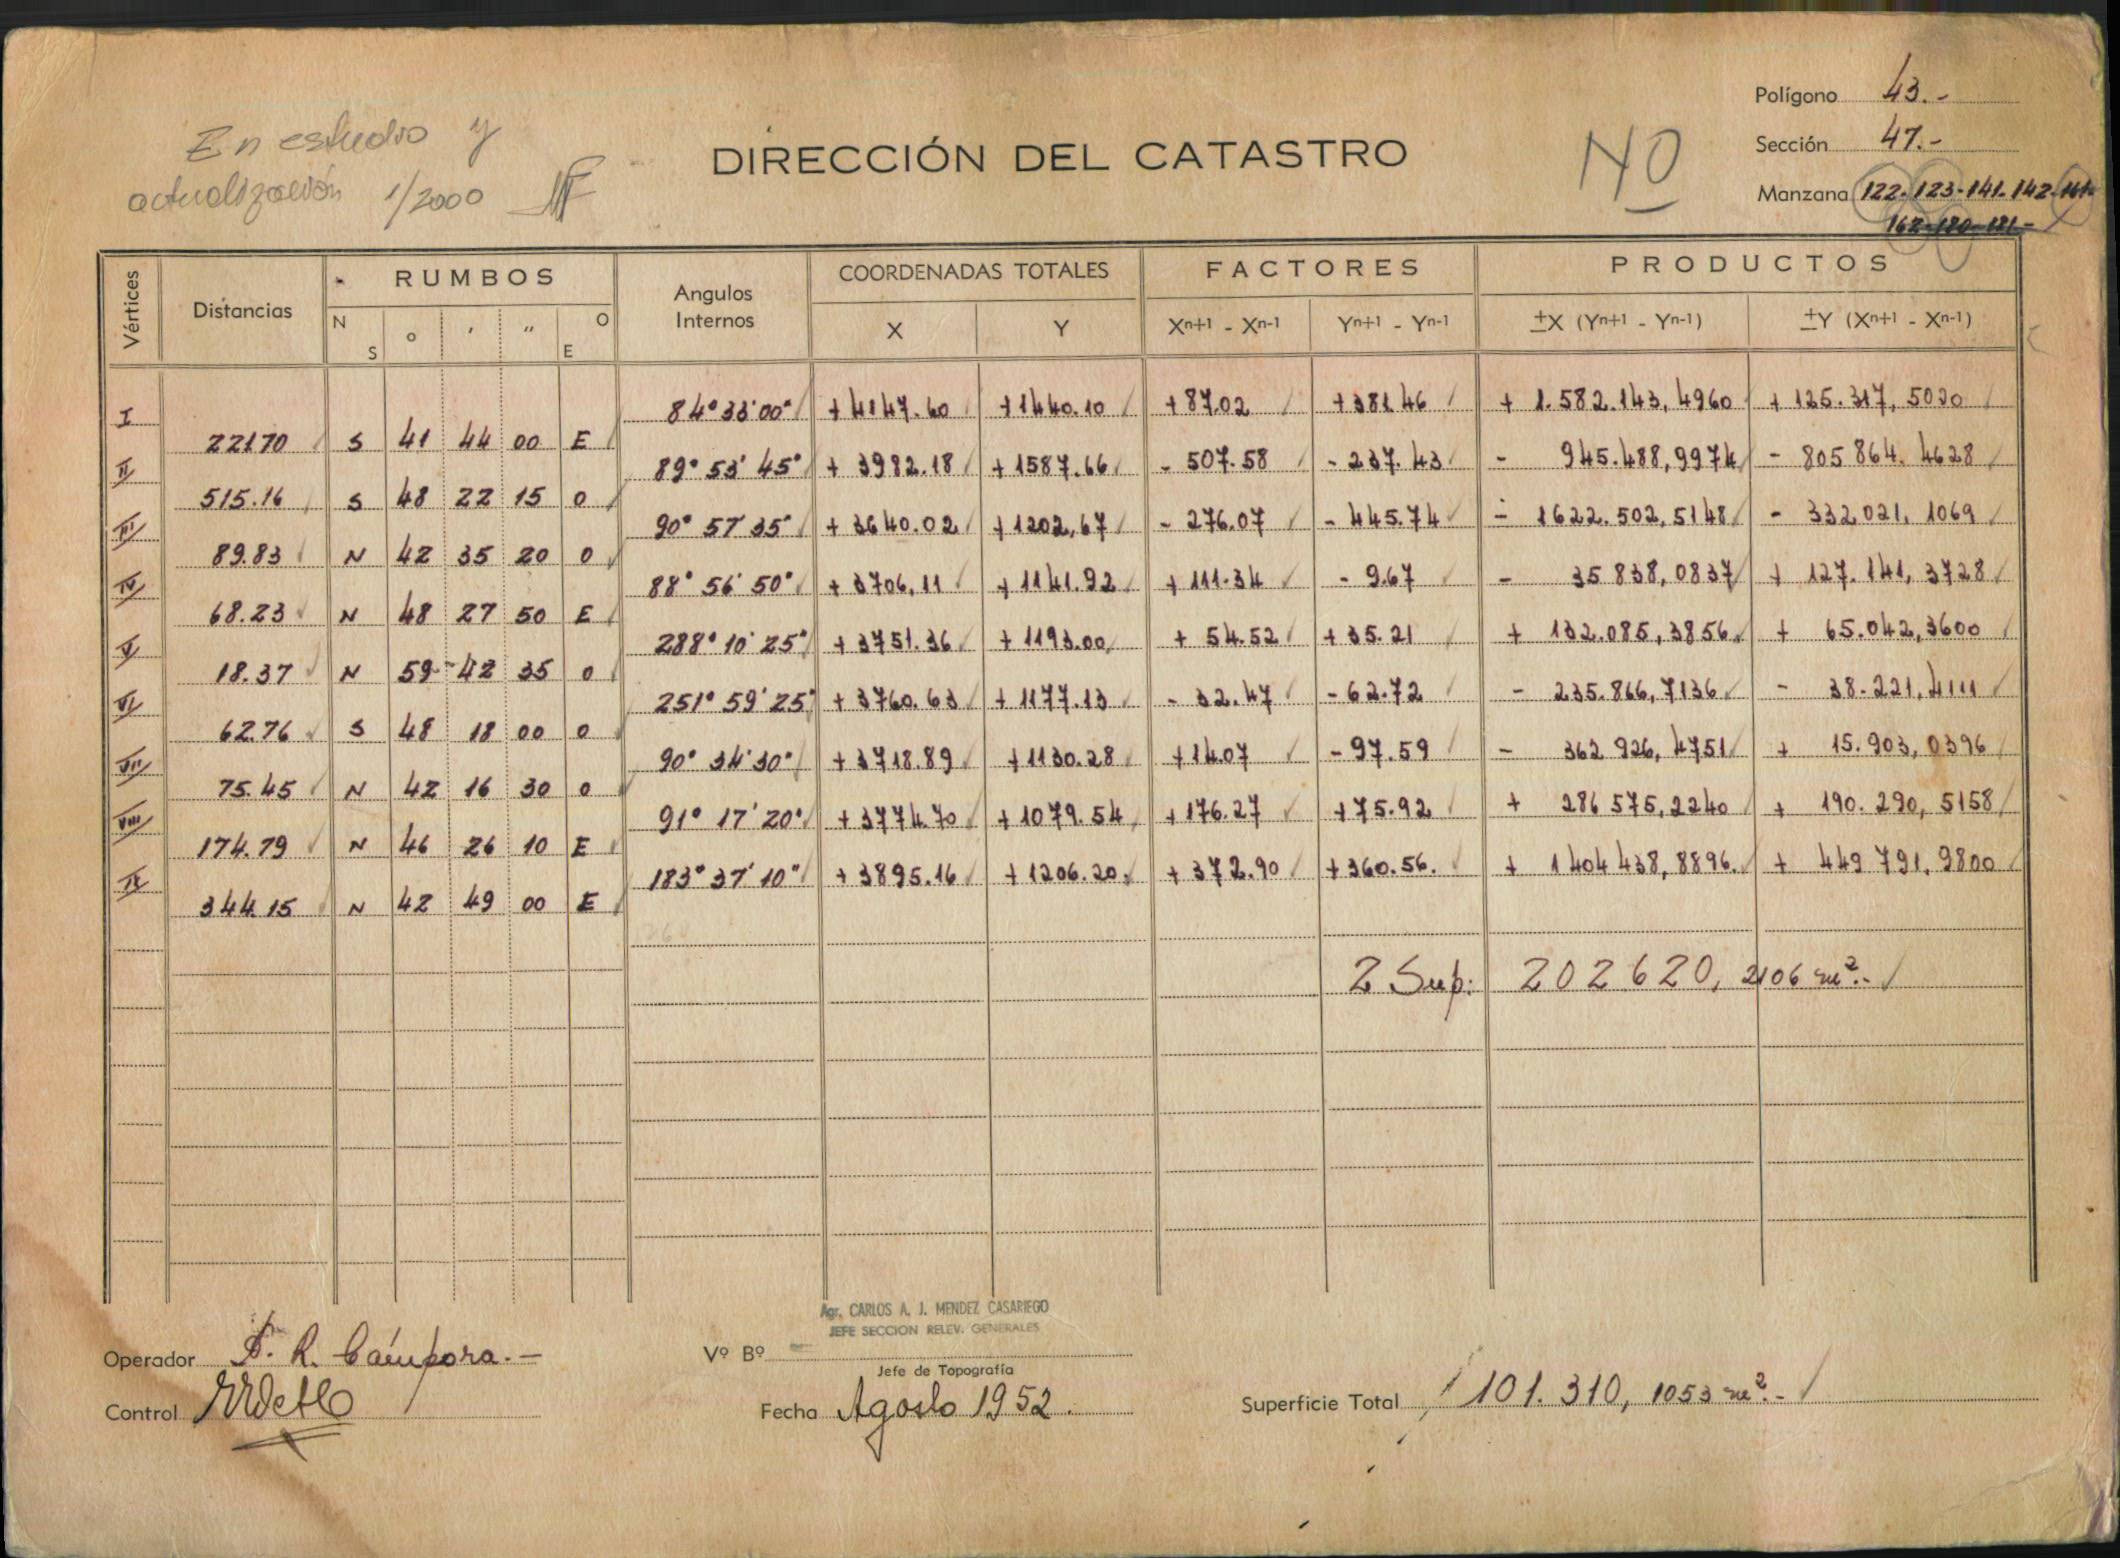 En estudio y
actualización 1/2000
DIRECCIÓN DEL CATASTRO
NO
Polígono 43.-
Sección 47.-
Manzana 122-123-141-142-161-
162-180-181-
Vértices Distancias RUMBOS Angulos Internos COORDENADAS TOTALES FACTORES PRODUCTOS
N S ° ' " O E X Y Xn+1 - Xn-1 Yn+1 - Yn-1 ±X (Yn+1 - Yn-1) ±Y (Xn+1 - Xn-1)
I 84° 33' 00" +4147.60 +1440.10 +87.02 +381.46 + 1.582.143,4960 + 125.317,5020
221.70 S 41 44 00 E
II 89° 53' 45" + 3982.18 + 1587.66 - 507.58 - 237.43 - 945.488,9974 - 805 864.4628
515.16 S 48 22 15 O
III 90° 57' 35" + 3640.02 + 1202,67 - 276.07 - 445.74 - 1622.502,5148 - 332.021,1069
89.83 N 42 35 20 O
IV 88° 56' 50" + 3706,11 + 1141.92 + 111.34 - 9.67 - 35 838,0837 + 127.141,3728
68.23 N 48 27 50 E
V 288° 10' 25" + 3751.36 + 1193.00 + 54.52 + 35.21 + 132.085,3856 + 65.042,3600
18.37 N 59 42 35 O
VI 251° 59' 25" + 3760.63 + 1177.13 - 32.47 - 62.72 - 235.866,7136 - 38.221,4111
62.76 S 48 18 00 O
VII 90° 34' 30" + 3718.89 + 1130.28 + 14.07 - 97.59 - 362 926,4751 + 15.903,0396
75.45 N 42 16 30 O
VIII 91° 17' 20" + 3774.70 + 1079.54 + 176.27 + 75.92 + 286 575,2240 + 190.290,5158
174.79 N 46 26 10 E
IX 183° 37' 10" + 3895.16 + 1206.20 + 372.90 + 360.56. + 1 404 438,8896. + 449 791,9800
344.15 N 42 49 00 E
2 Sup: 202620,2106 m².-
Agr. CARLOS A. J. MENDEZ CASARIEGO
JEFE SECCION RELEV. GENERALES
Operador R. Cámpora.-
Vº Bº
Jefe de Topografía
Control
Fecha Agosto 1952.
Superficie Total 101.310,1053 m².-